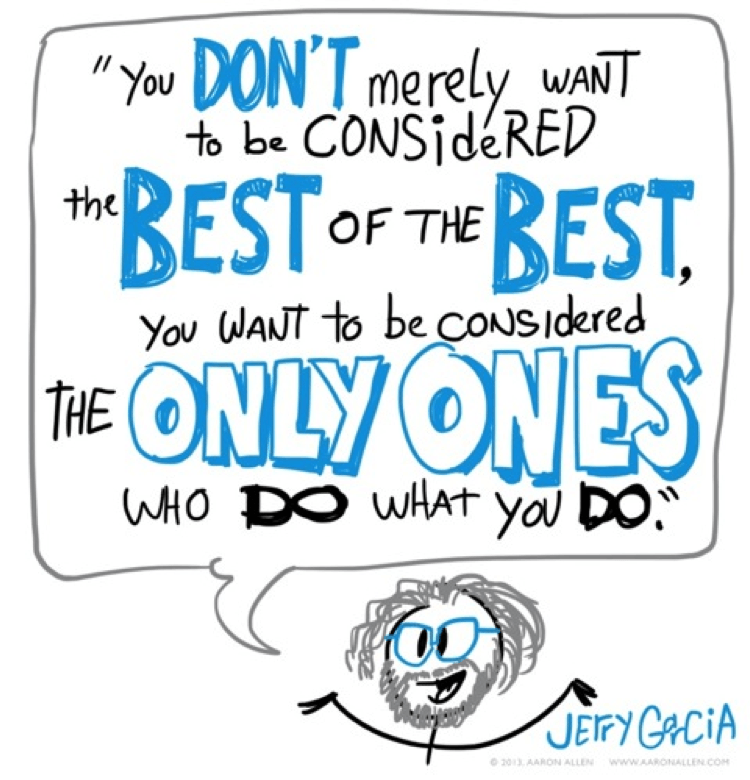 "YOU DON'T merely WANT
to be CONSidéRED
the BEST OF THE BEST,
YOU WANT to be CONSIdered
THE ONLY ONES
WHO DO WHAT YOU DO."
JERRY GARCIA
© 2013, AARON ALLEN WWW.AARONALLEN.COM